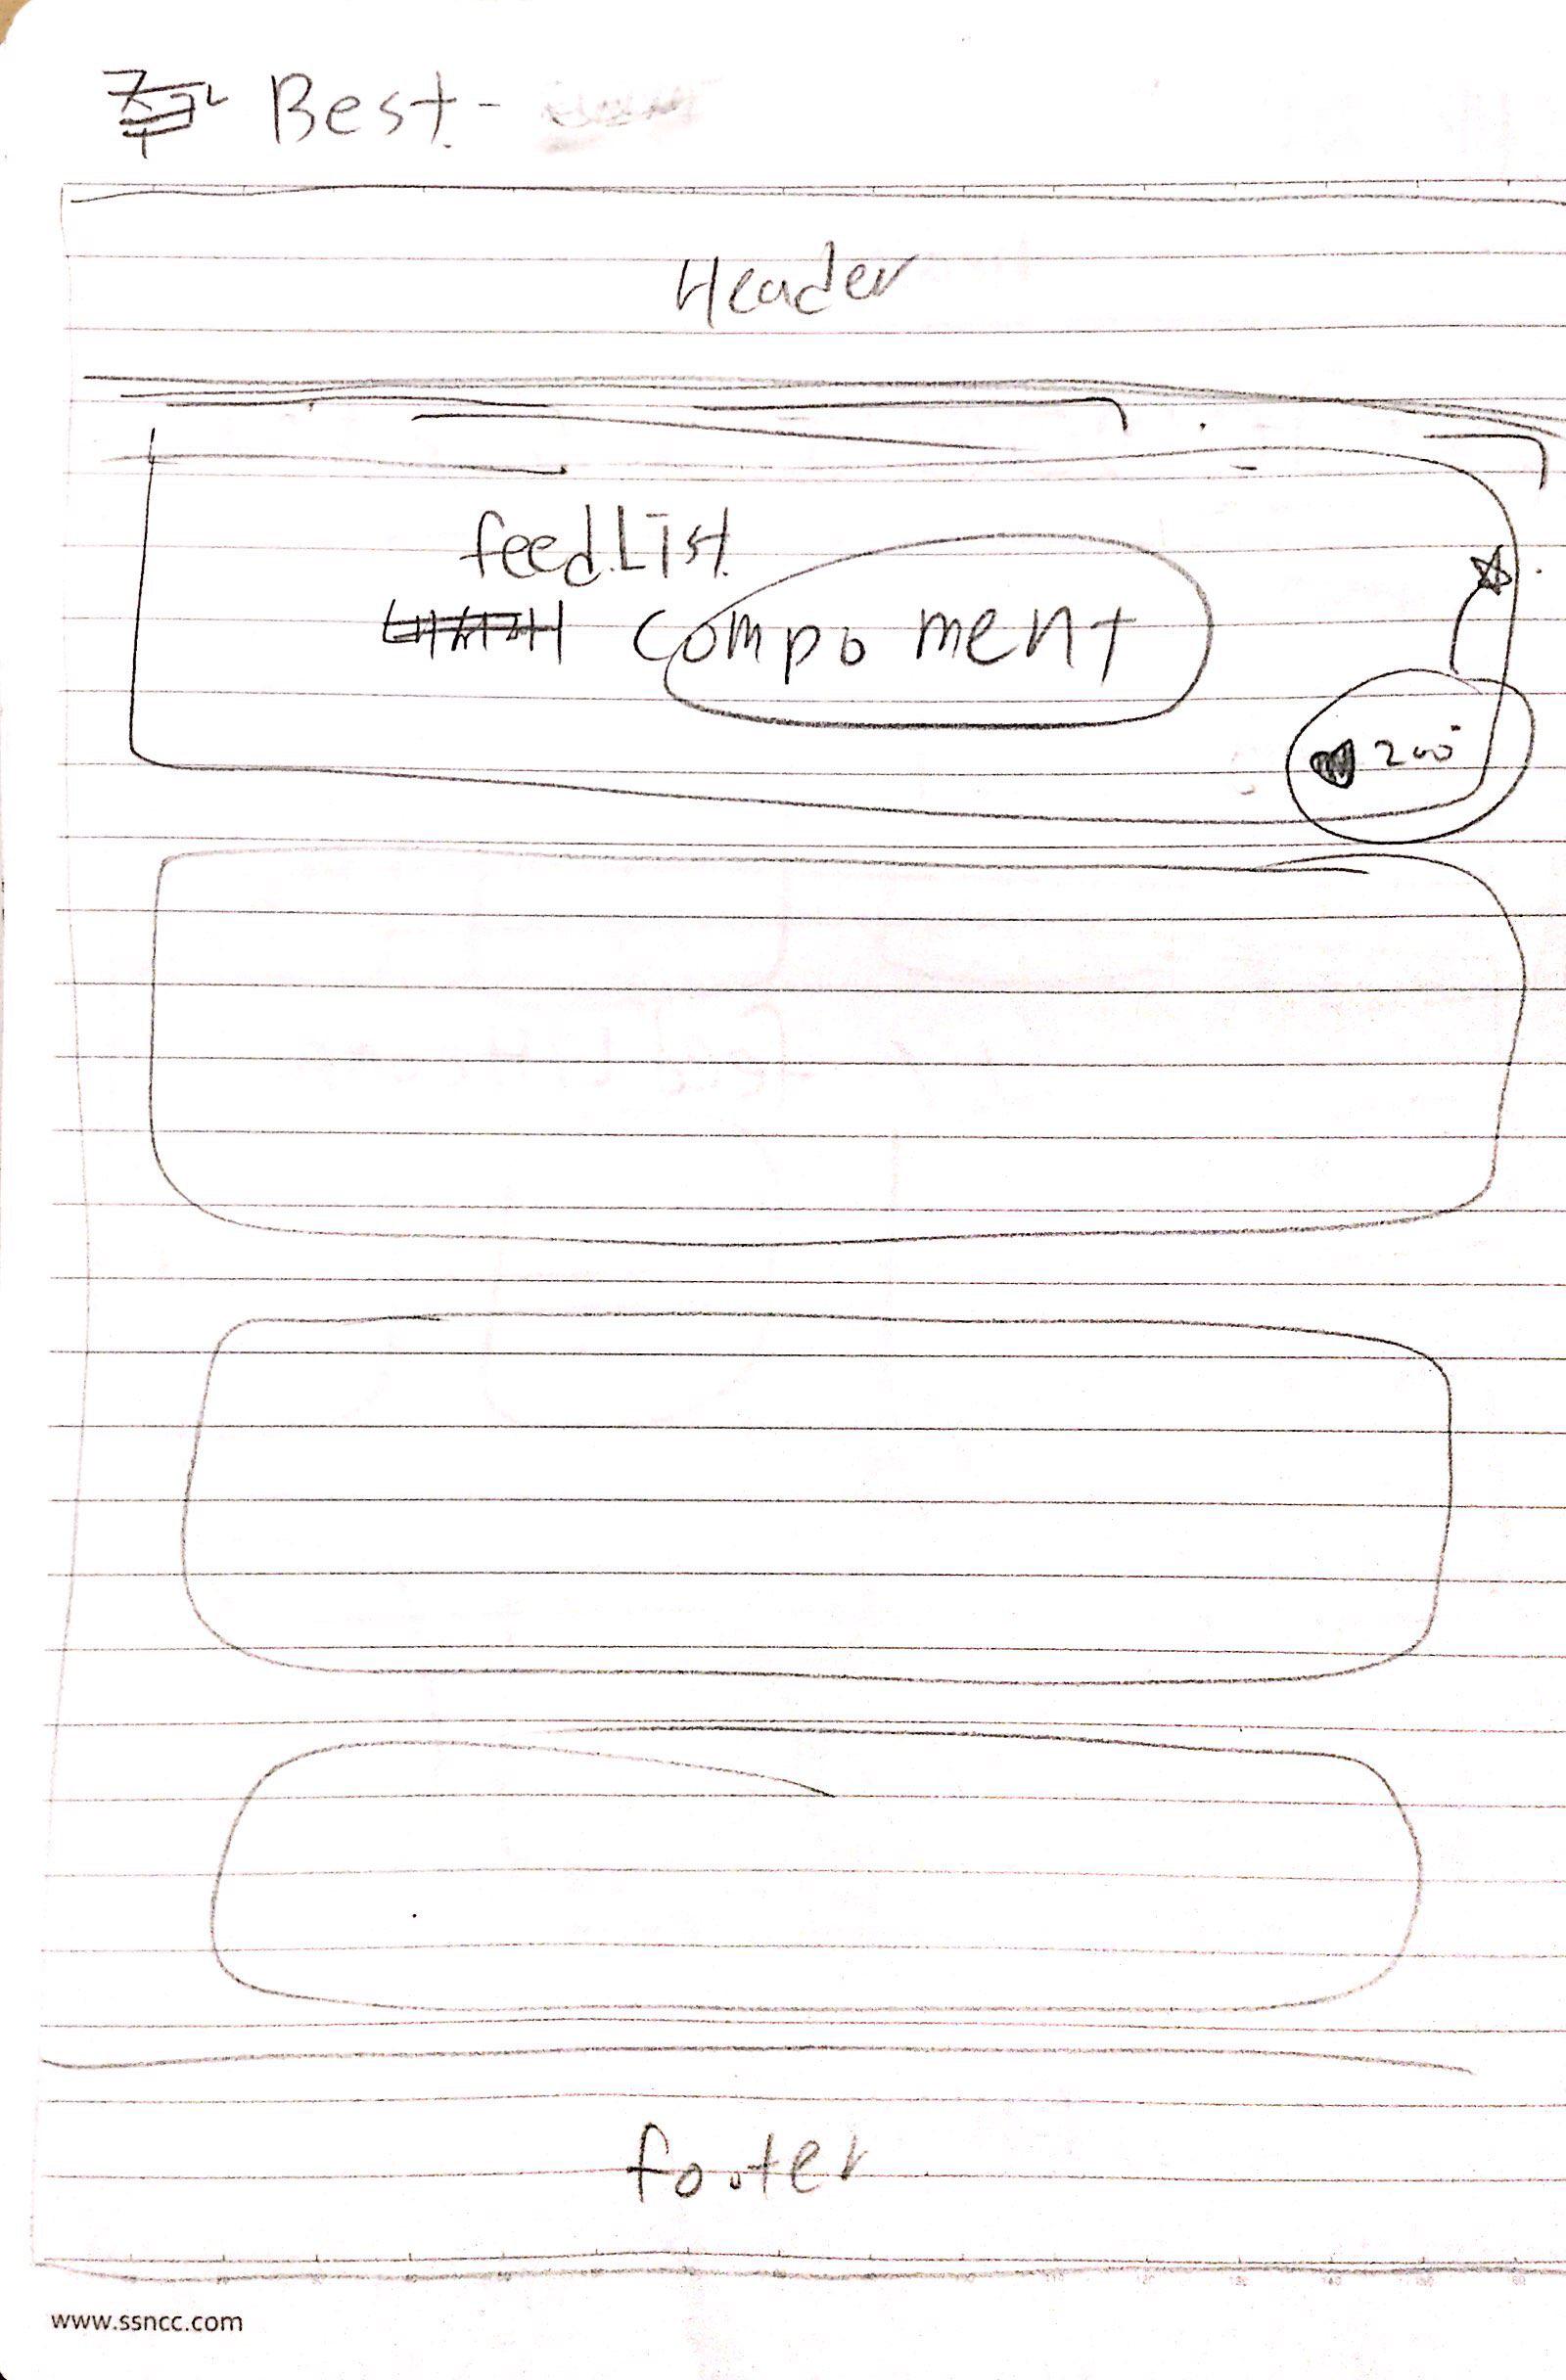 Best.-
Header
feed.List.
compoment
200
footer
www.ssncc.com